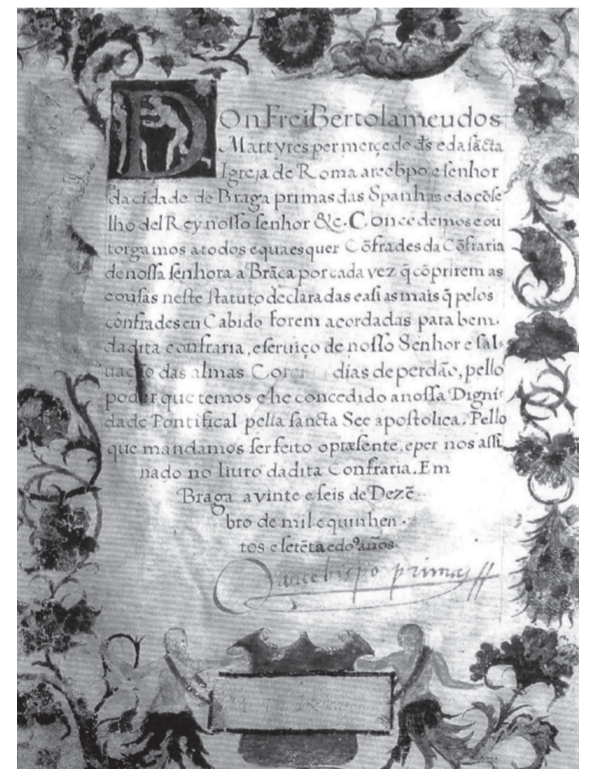 DOn Frei Bertolameu dos
Martyres per merçe de d̃s e da sãcta
Igreja de Roma arcebpo e senhor
da cidade de Braga primas das Spanhas e do cõse
lho del Rey nosso senhor &c. Concedemos e ou
torgamos a todos e quaesquer Cõfrades da Cõfraria
de nossa senhora a Brãca por cada vez q̃ cõprirem as
cousas neste statuto declaradas e asi as mais q̃ pelos
confrades en Cabido forem acordadas para bem
da dita confraria, e seruiço de nosso Senhor e sal-
uação das almas dias de perdão, pello
poder que temos e he concedido a nossa Digni-
dade Pontifical pella sancta See apostolica. Pello
que mandamos ser feito o præsente, e per nos assi
nado no liuro da dita Confraria. Em
Braga a vinte e seis de Dezẽ
bro de mil e quinhen-
tos e setẽta e doˢ años.
arcebispo primas